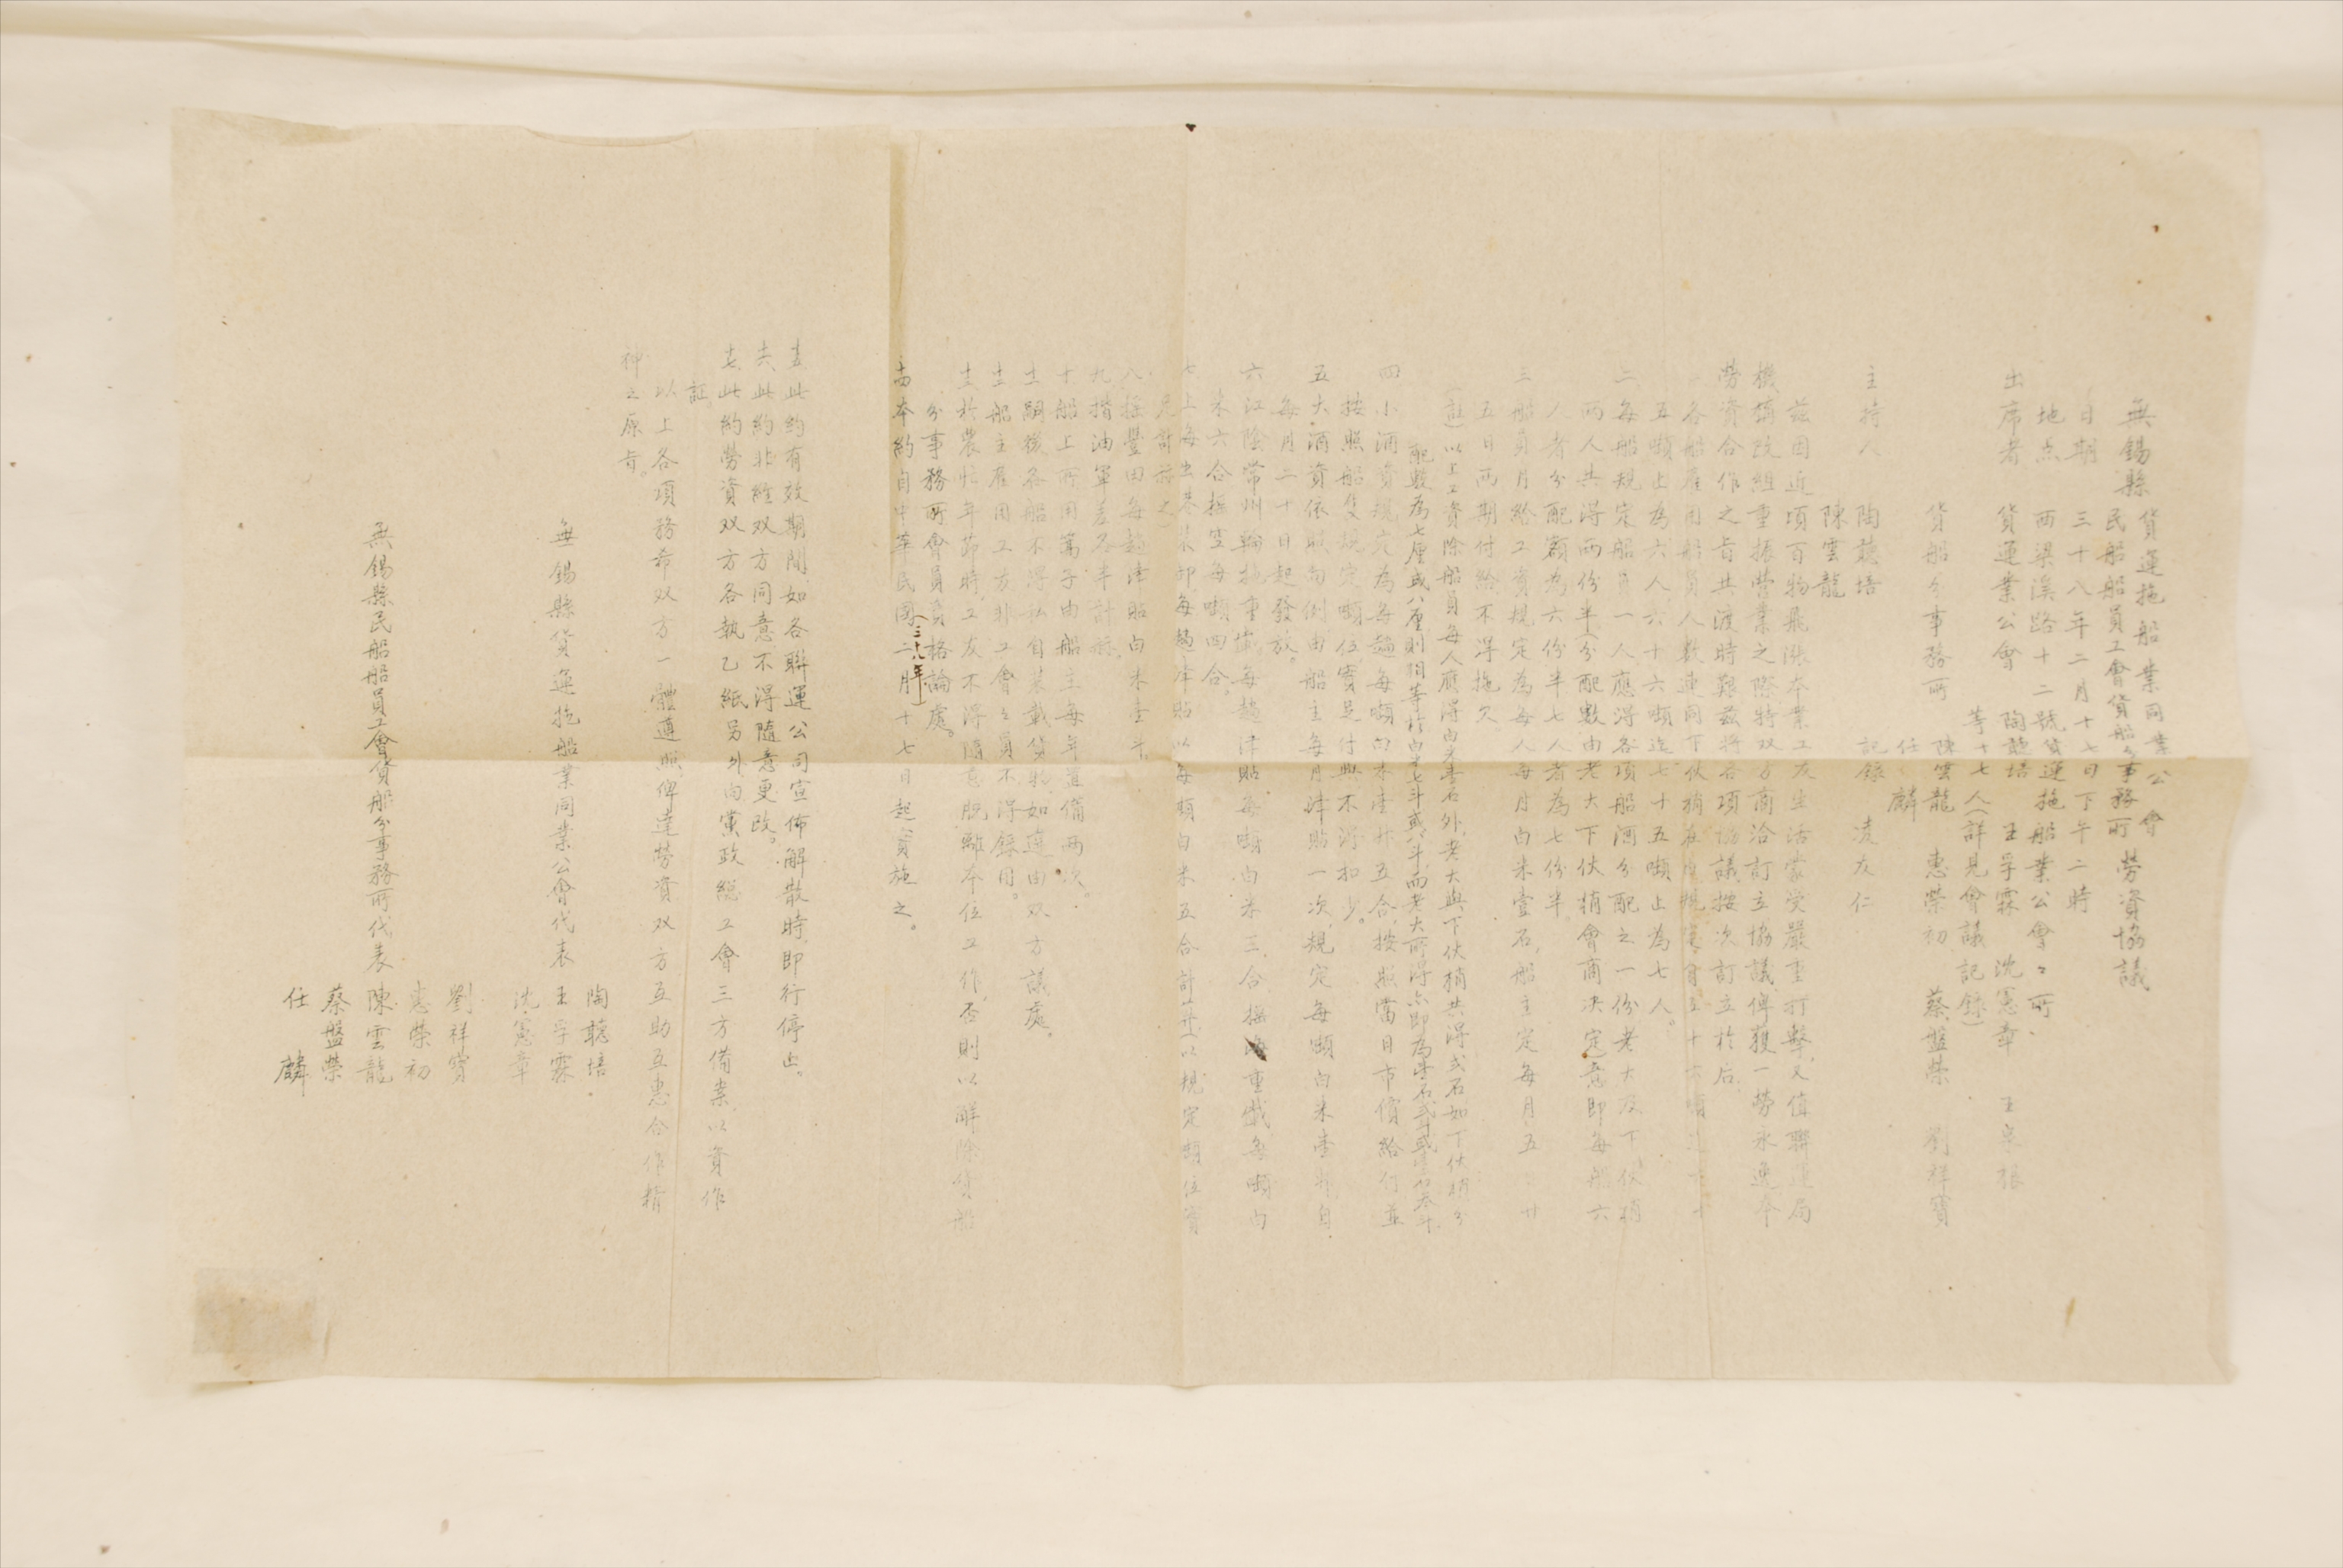 無錫縣
貨運拖船業同業公會
民船船員工會貨船分事務所
勞資協議
日期 三十八年二月十七日下午二時
地点 西梁溪路十二號貨運拖船業公會々所
出席者 貨運業公會 陶聽培 王孚霖 沈憲章 王卓張
等十七人(詳見會議記錄)
貨船分事務所 陳雲龍 惠榮初 蔡盤榮 劉祥寶
任麟
主持人 陶聽培 記錄 凌友仁
陳雲龍
茲因近項百物飛漲本業工友生活蒙受嚴重打擊,又值聯運局
機構改組重振營業之際特双方商洽訂立協議俾獲一勞永逸本
勞資合作之旨共渡時艱茲將各項協議按次訂立於后
一各船雇用船員人數連同下伙梢在內規定自五十六噸
五噸止為六人,六十六噸迄七十五噸止為七人。
二每船規定船員一人應得各項船酒分配之一份老大及下伙梢
兩人共得兩份半(分配數由老大下伙梢會商决定)意即每船六
人者分配額為六份半七人者為七份半。
三船員月給工資規定為每人每月白米壹石,船主定每月五日廿
五日兩期付給不得拖欠
(註)以上工資除船員每人應得白米壹石外,老大與下伙梢共得弍石如下伙梢分
配數為七厘或八厘則相等於白米七斗或八斗,而老大所得亦即為壹石弍斗或壹石叁斗
四小酒資規定為每趟每噸白米壹升五合,按照當日市價給付並
按照船隻規定噸位實足付與不得扣少。
五大酒資依照向例由船主每月津貼一次,規定每噸白米壹升,自
每月二十日起發放。
六江陰常州輪拖重儎每趟津貼每噸白米三合搖重儎每噸白
米六合搖空每噸四合。
七上海出巷裝卸,每趟津貼以每噸白米五合計算以規定噸位實
足計算之
八搖豐田每趟津貼白米壹斗。
九揩油軍差各半計算。
十船上所用篙子由船主每年置備兩次。
十一嗣後各船不得私自裝載貨物如違由双方議處。
十二船主雇用工友非工會々員不得錄用。
十三於農忙年節時,工友不得隨意脫離本位工作,否則以解除貨船
分事務所會員資格論處。
十四本約自中華民國(三十八年)二月十七日起實施之。
十五此約有效期間如各聯運公司宣佈解散時,即行停止。
十六此約非經双方同意不得隨意更改。
十七此約勞資双方各執乙紙另外向黨政總工會三方備案以資作
証。
以上各項務希双方一體遵照俾達勞資双方互助互惠合作精
神之原旨。
無錫縣貨運拖船業同業公會代表
陶聽培
王孚霖
沈憲章
無錫縣民船船員工會貨船分事務所代表
劉祥寶
惠榮初
陳雲龍
蔡盤榮
任麟